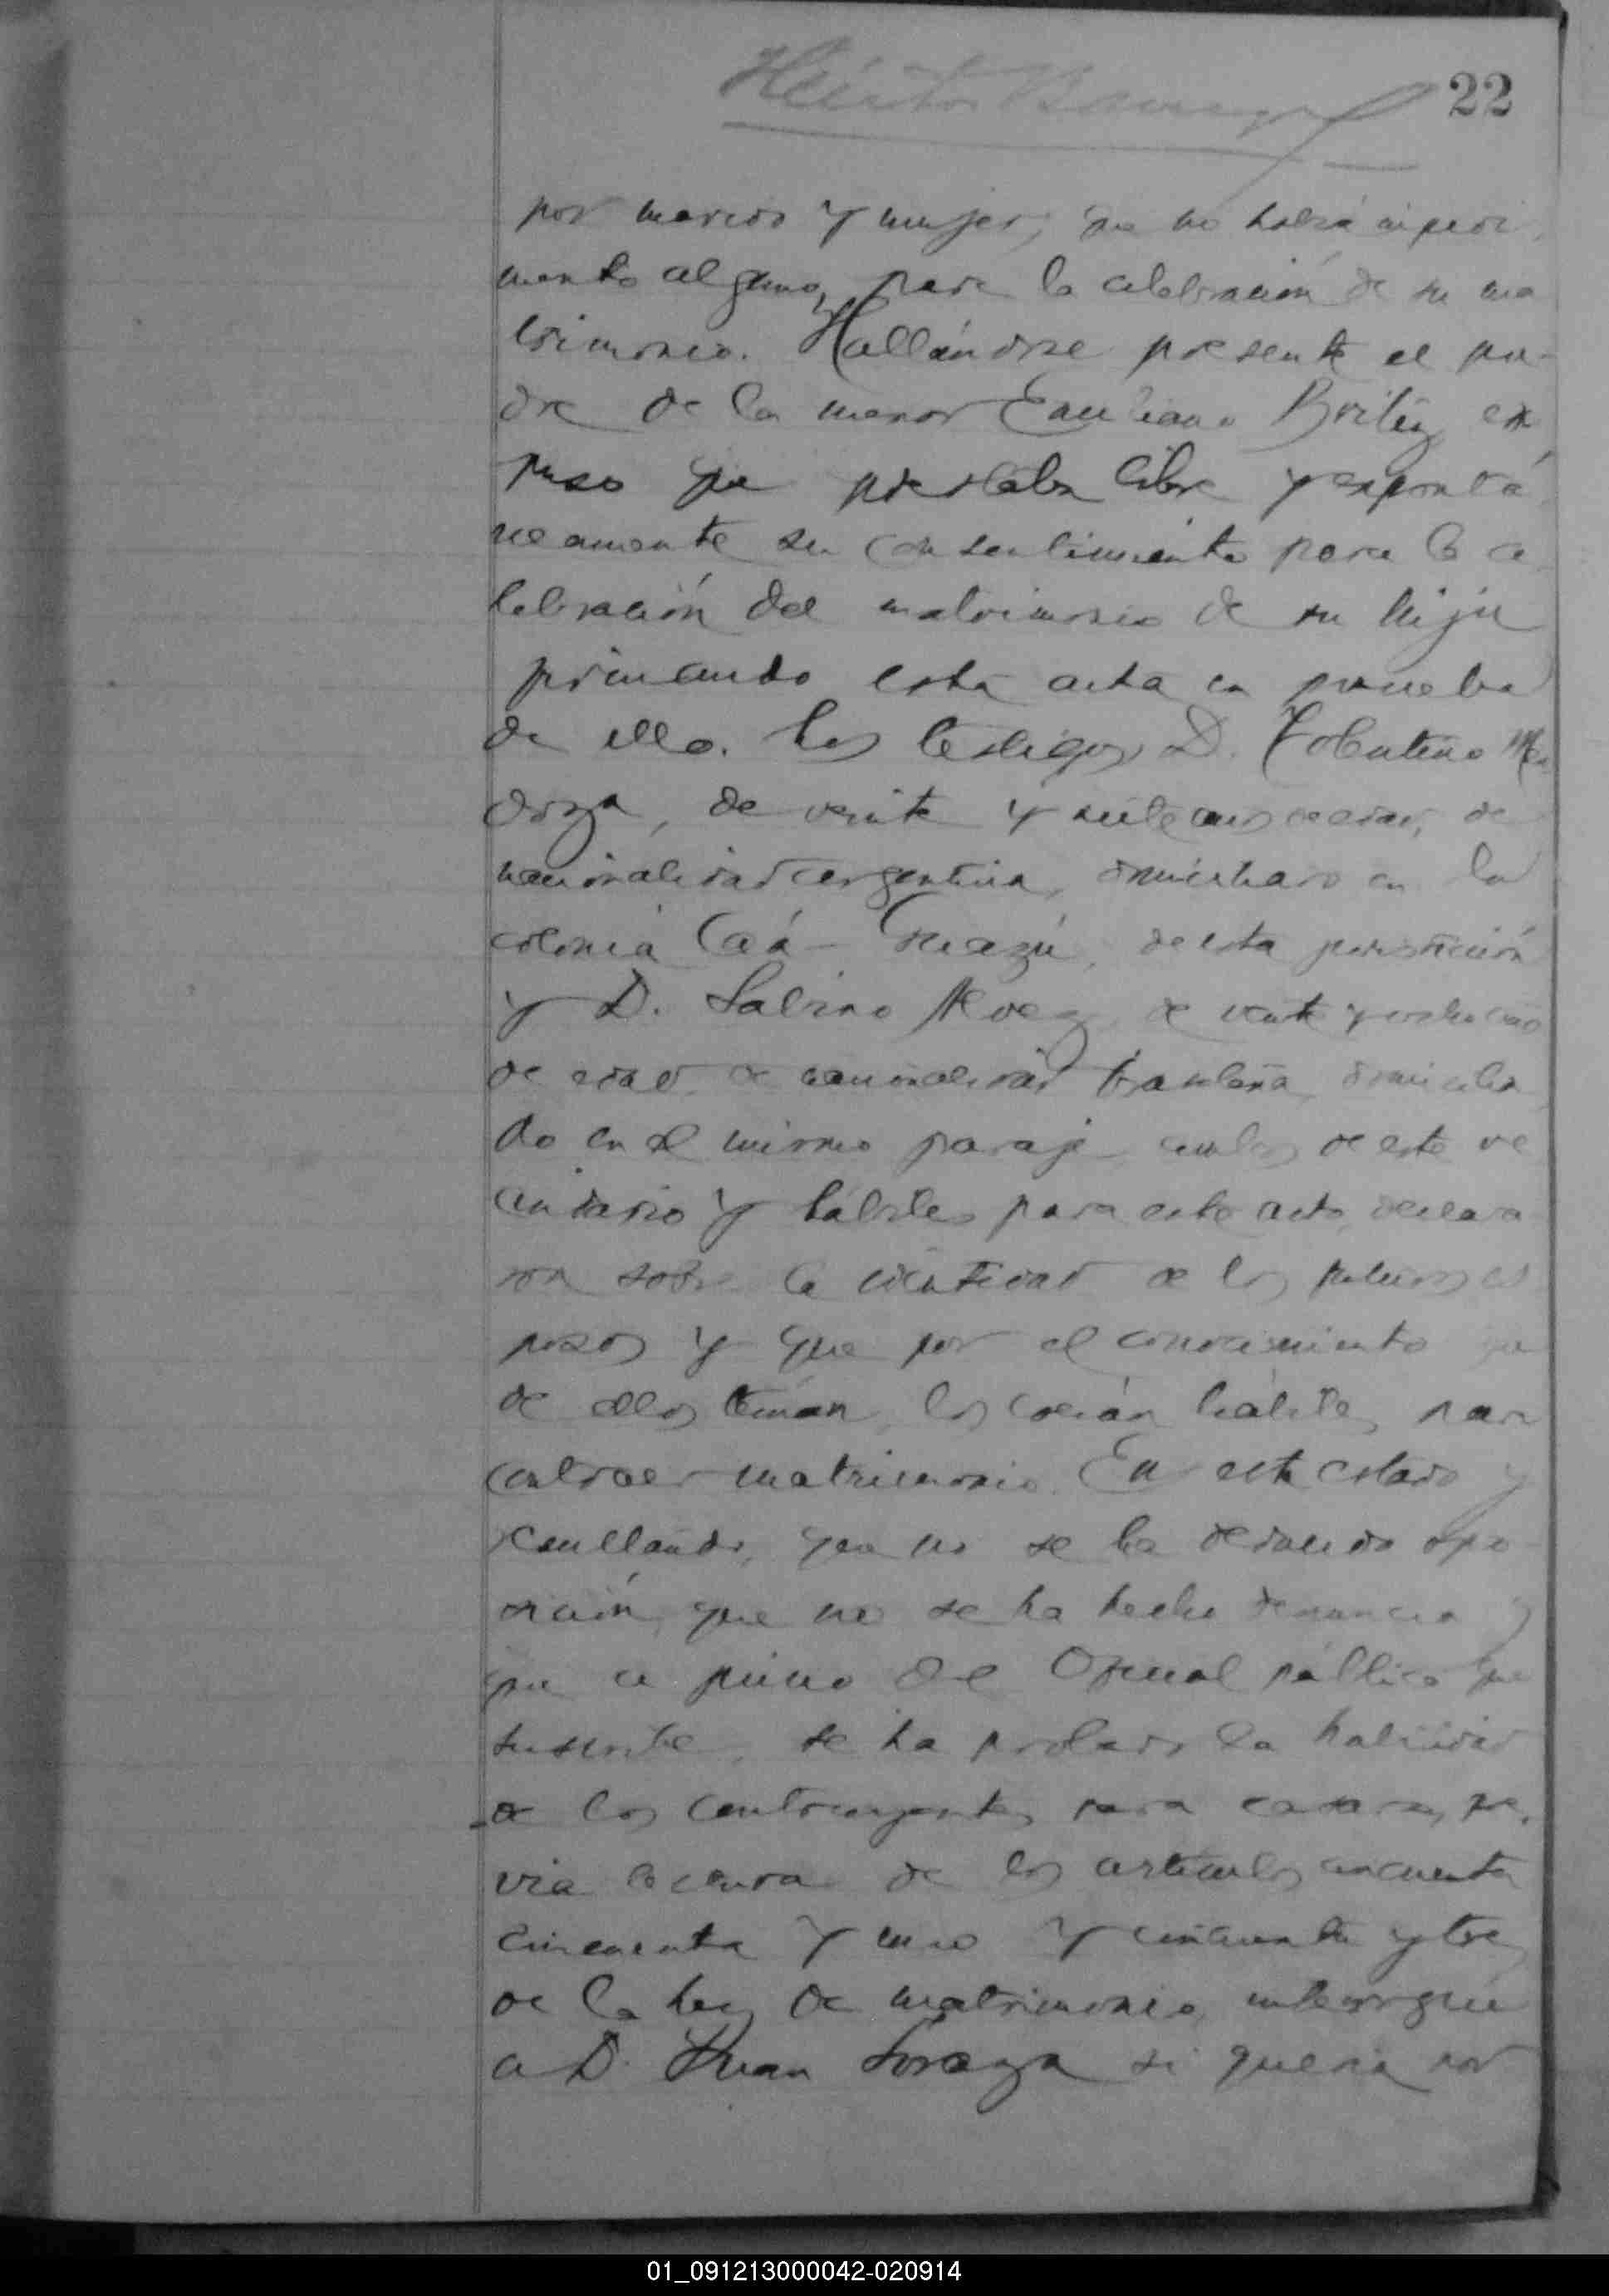 Héctor Barreyro
22
por marido y mujer, que no había impedi
mento alguno, para la celebración de su ma
trimonio. Hallándose presente el pa-
dre de la menor Emiliano Britez ex
puso que prestaba libre y espontá
neamente su consentimiento para la ce
lebración del matrimonio de su hija
firmando esta acta en prueba
de ello. Los testigos D. Tolentino Men
doza, de veinte y siete años de edad, de
nacionalidad argentina, domiciliado en la
colonia Caá-Guazú, de esta jurisdicción
y D. Sabino Alvez, de veinte y ocho años
de edad, de nacionalidad brasileña, domicilia
do en el mismo paraje, ambos de este ve
cindario y hábiles para este acto, declara
ron sobre la identidad de los futuros es
posos y que por el conocimiento que
de ellos tenían, los creían hábiles para
contraer matrimonio. En este estado y
resultando, que no se ha deducido opo-
sición, que no se ha hecho denuncia y
que a juicio del Oficial público que
suscribe, se ha probado la habilidad
de los contrayentes para casarse, pre-
via lectura de los artículos cincuenta
cincuenta y uno y cincuenta y tres
de la ley de matrimonio, interrogué
a D. Juan Loraga si quería por
01_091213000042-020914